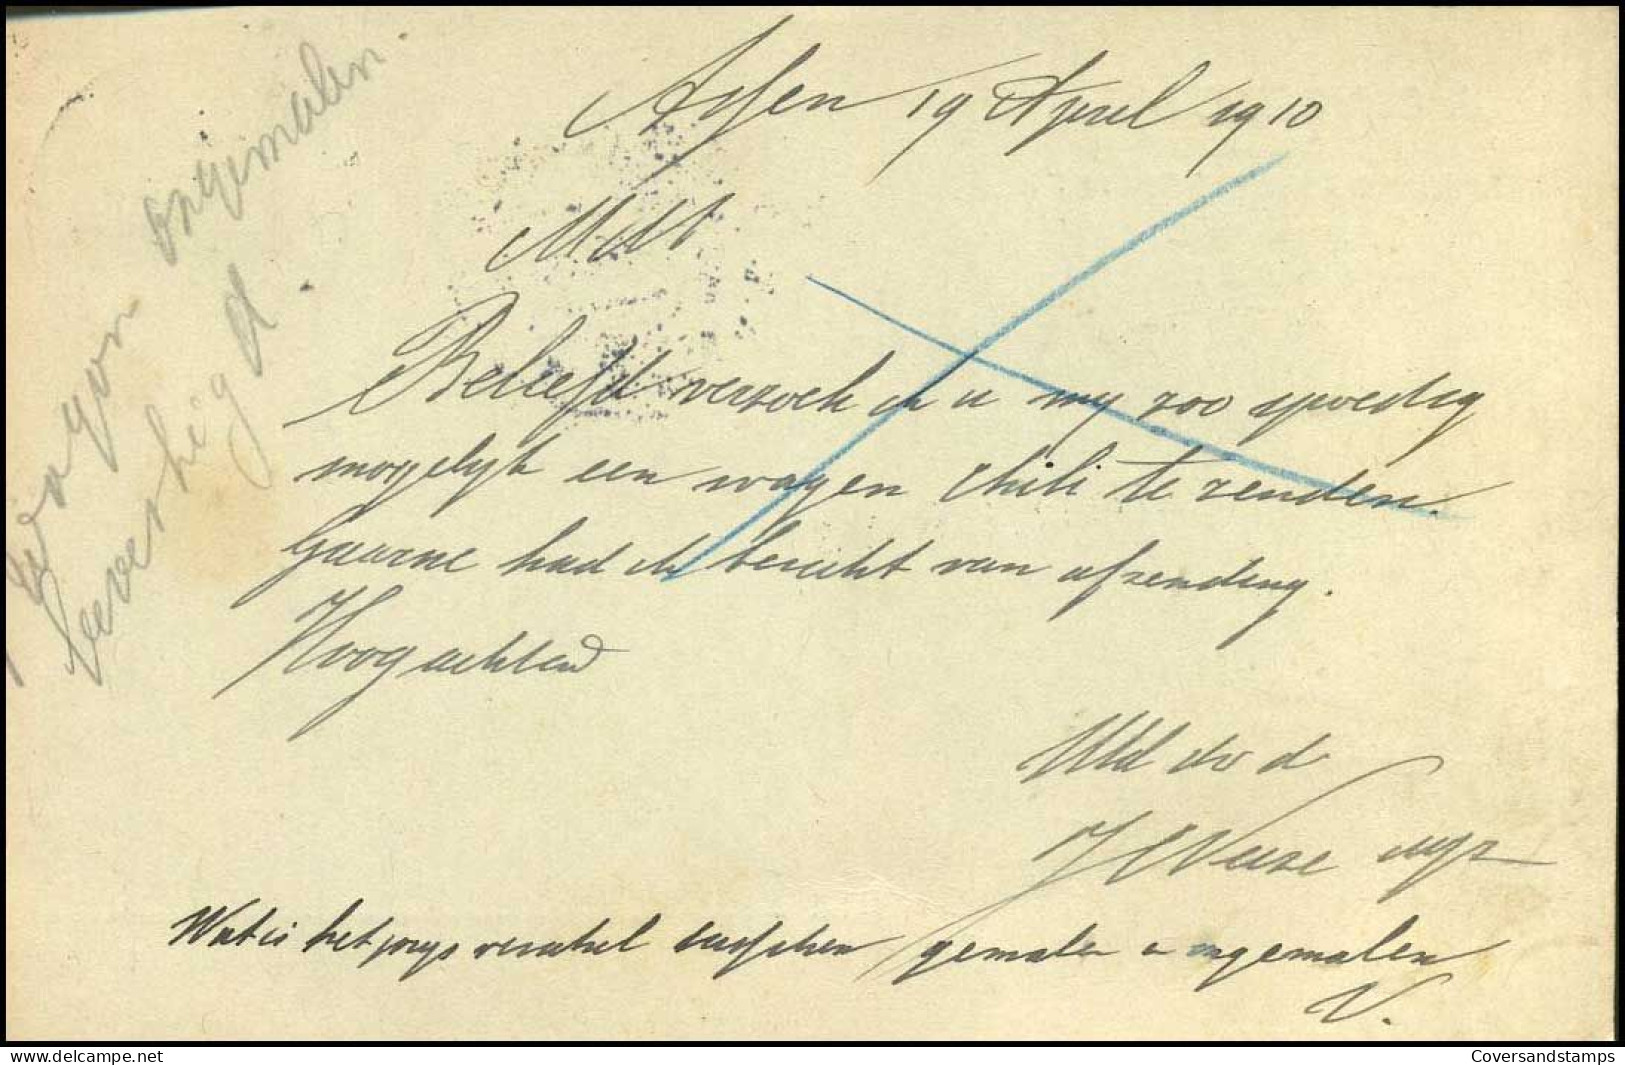 Assen 19 April 1910
Beleefd verzoek ik u my zoo spoedig
mogelijk een wagen chili te zenden.
Gaarne had ik bericht van afzending.
Hoogachtend
Uld dv d
Wat is het prijs verschil tusschen gemalen en ongemalen
V.
Wagon ongemalen
bevestigd.
www.delcampe.net
Coversandstamps